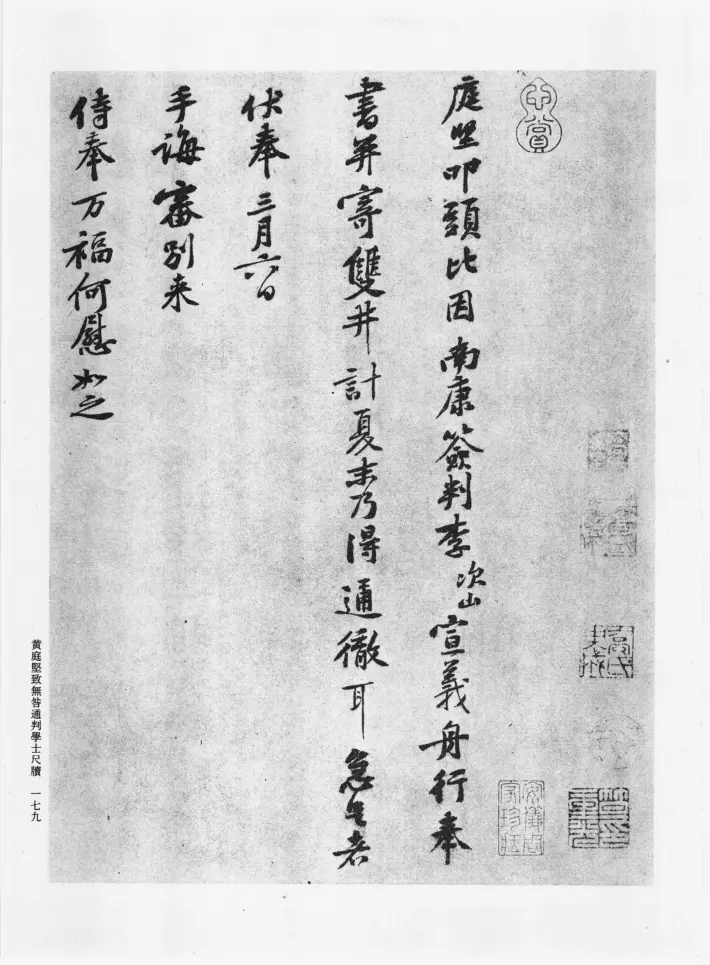 心賞
庭堅叩頭比因南康簽判李次山宣義舟行奉
書并寄雙井計夏末乃得通徹耳急足者
伏奉三月六日
手誨審別来
侍奉万福何慰如之
安儀周家珍藏
黄庭堅致無咎通判學士尺牘 一七九